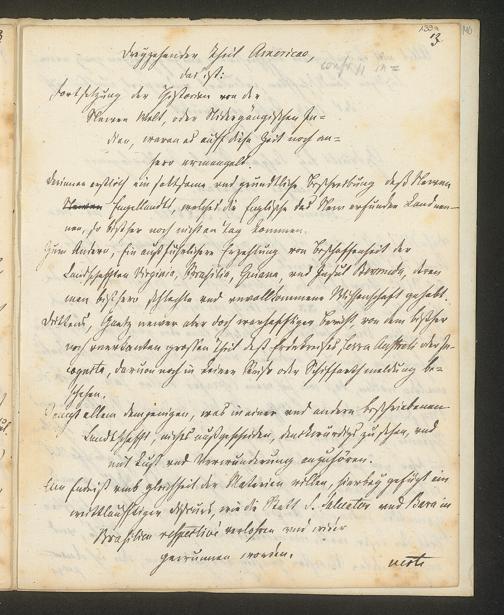 139a 140
13
Dreyzehender Theil Americae,
das ist:
Fortsetzung der Historien von der
Newen Welt, oder Nidergängischen In-
dien, waran es auff diese Zeit noch an-
hero ermangelt.
Darinnen erstlich ein seltsame und gründtliche Beschreibung deß Newen
Engellandts, welches die Englische das New erfunden Land nen-
nen, so bißher noch nicht an Tag kommen.
Zum Andern, Ein außführlichere Erzehlung von Beschaffenheit der
Landschafften Virginia, Brasilia, Guiana, und Insul Bermuda, deren
man bißhero schlechte und unvollkommene Wissenschaft gehabt.
Drittens, Gantz newer aber doch warhafftiger Bericht von dem bißher
noch unerkanten grossen Theil deß Erdkreises Terra Australi oder In-
cognita, darvon noch in keiner Reise oder Schiffarth meldung be-
schehen.
allem demjenigen, was in einer und andern beschriebenen
Landschafft, nichts außgescheiden, denckwürdigs zu sehen, und
mit Lust und Verwunderung anzuhören.
Am Ende ist umb gleichheit der Materien willen, hierbey gefügt ein
weitläufftiger discurs, wie die Statt S. Salvator und Baya in
Brasilien respective verlohren und wider
gewunnen worden.